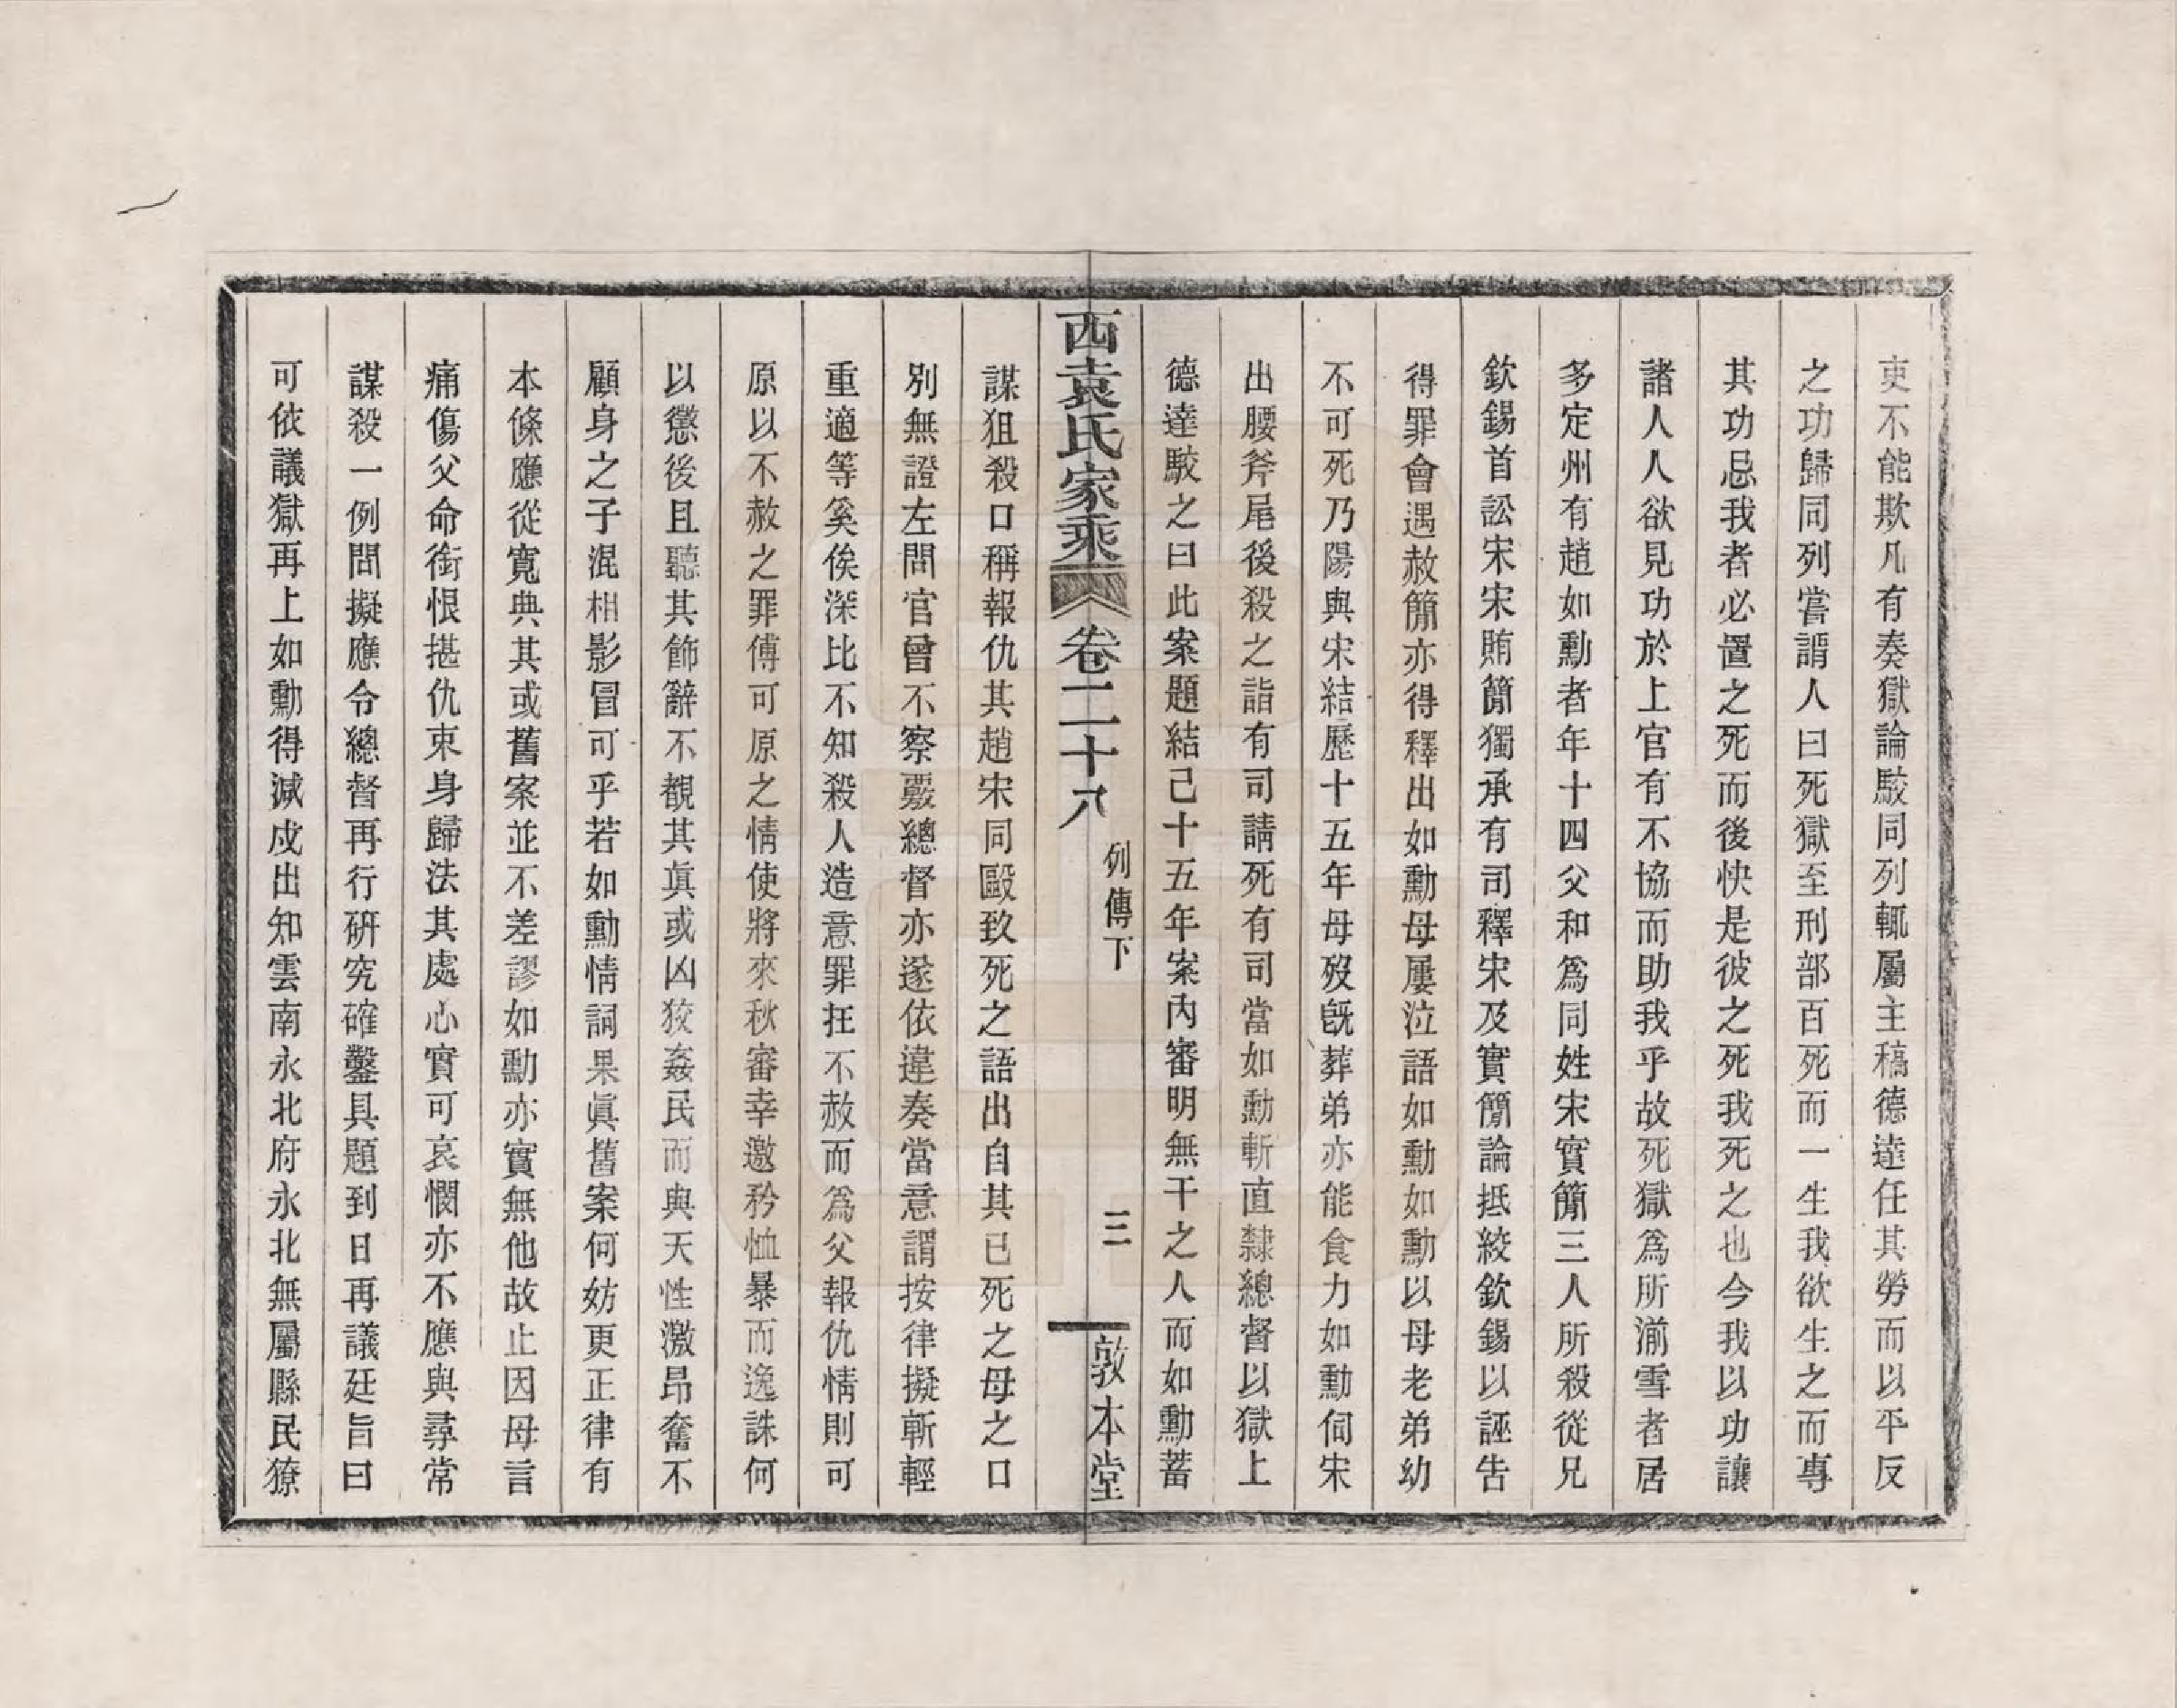 吏不能欺凡有奏獄論駁同列輒屬主稿德達任其勞而以平反
之功歸同列嘗謂人曰死獄至刑部百死而一生我欲生之而專
其功忌我者必置之死而後快是彼之死我死之也今我以功讓
諸人人欲見功於上官有不協而助我乎故死獄爲所湔雪者居
多定州有趙如勳者年十四父和爲同姓宋實簡三人所殺從兄
欽錫首訟宋宋賄簡獨承有司釋宋及實簡論抵絞欽錫以誣告
得罪會遇赦簡亦得釋出如勳母屢泣語如勳如勳以母老弟幼
不可死乃陽與宋結歷十五年母歿旣葬弟亦能食力如勳伺宋
出腰斧尾後殺之詣有司請死有司當如勳斬直隸總督以獄上
德達駁之曰此案題結已十五年案內審明無干之人而如勳蓄
西袁氏家乘 卷二十八 列傳下 三 敦本堂
謀狙殺口稱報仇其趙宋同毆致死之語出自其已死之母之口
別無證左問官曾不察覈總督亦遂依違奏當意謂按律擬斬輕
重適等奚俟深比不知殺人造意罪在不赦而爲父報仇情則可
原以不赦之罪傅可原之情使將來秋審幸邀矜恤暴而逸誅何
以懲後且聽其飾辭不覩其眞或凶狡姦民而與天性激昂奮不
顧身之子混相影冒可乎若如勳情詞果眞舊案何妨更正律有
本條應從寬典其或舊案並不差謬如勳亦實無他故止因母言
痛傷父命銜恨揕仇束身歸法其處心實可哀憫亦不應與尋常
謀殺一例問擬應令總督再行硏究確鑿具題到日再議廷旨曰
可依議獄再上如勳得減戍出知雲南永北府永北無屬縣民獠